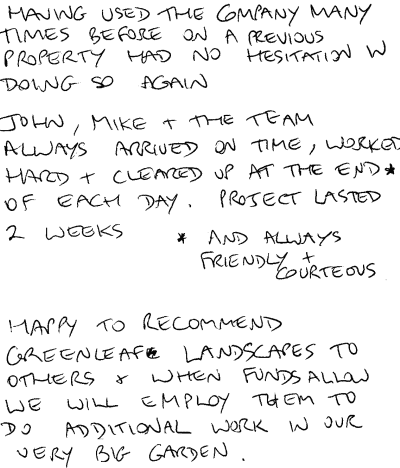 HAVING USED THE COMPANY MANY
TIMES BEFORE ON A PREVIOUS
PROPERTY HAD NO HESITATION IN
DOING SO AGAIN
JOHN, MIKE + THE TEAM
ALWAYS ARRIVED ON TIME, WORKED
HARD + CLEARED UP AT THE END *
OF EACH DAY. PROJECT LASTED
2 WEEKS
* AND ALWAYS
FRIENDLY +
COURTEOUS
HAPPY TO RECOMMEND
GREENLEAF LANDSCAPES TO
OTHERS & WHEN FUNDS ALLOW
WE WILL EMPLOY THEM TO
DO ADDITIONAL WORK IN OUR
VERY BIG GARDEN.